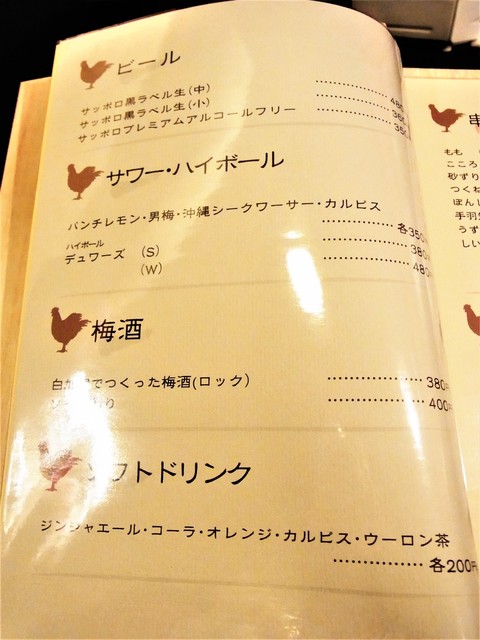 ビール
サッポロ黒ラベル生(中)
サッポロ黒ラベル生(小)
サッポロプレミアムアルコールフリー
サワー・ハイボール
パンチレモン・男梅・沖縄シークワーサー・カルピス
各350
ハイボール
デュワーズ (S) 380
(W) 480
梅酒
でつくった梅酒(ロック) 380円
400
ソフトドリンク
ジンジャエール・コーラ・オレンジ・カルピス・ウーロン茶
各200円
串
もも
こころ
砂ずり
つくね
ぼんし
手羽先
うず
しい